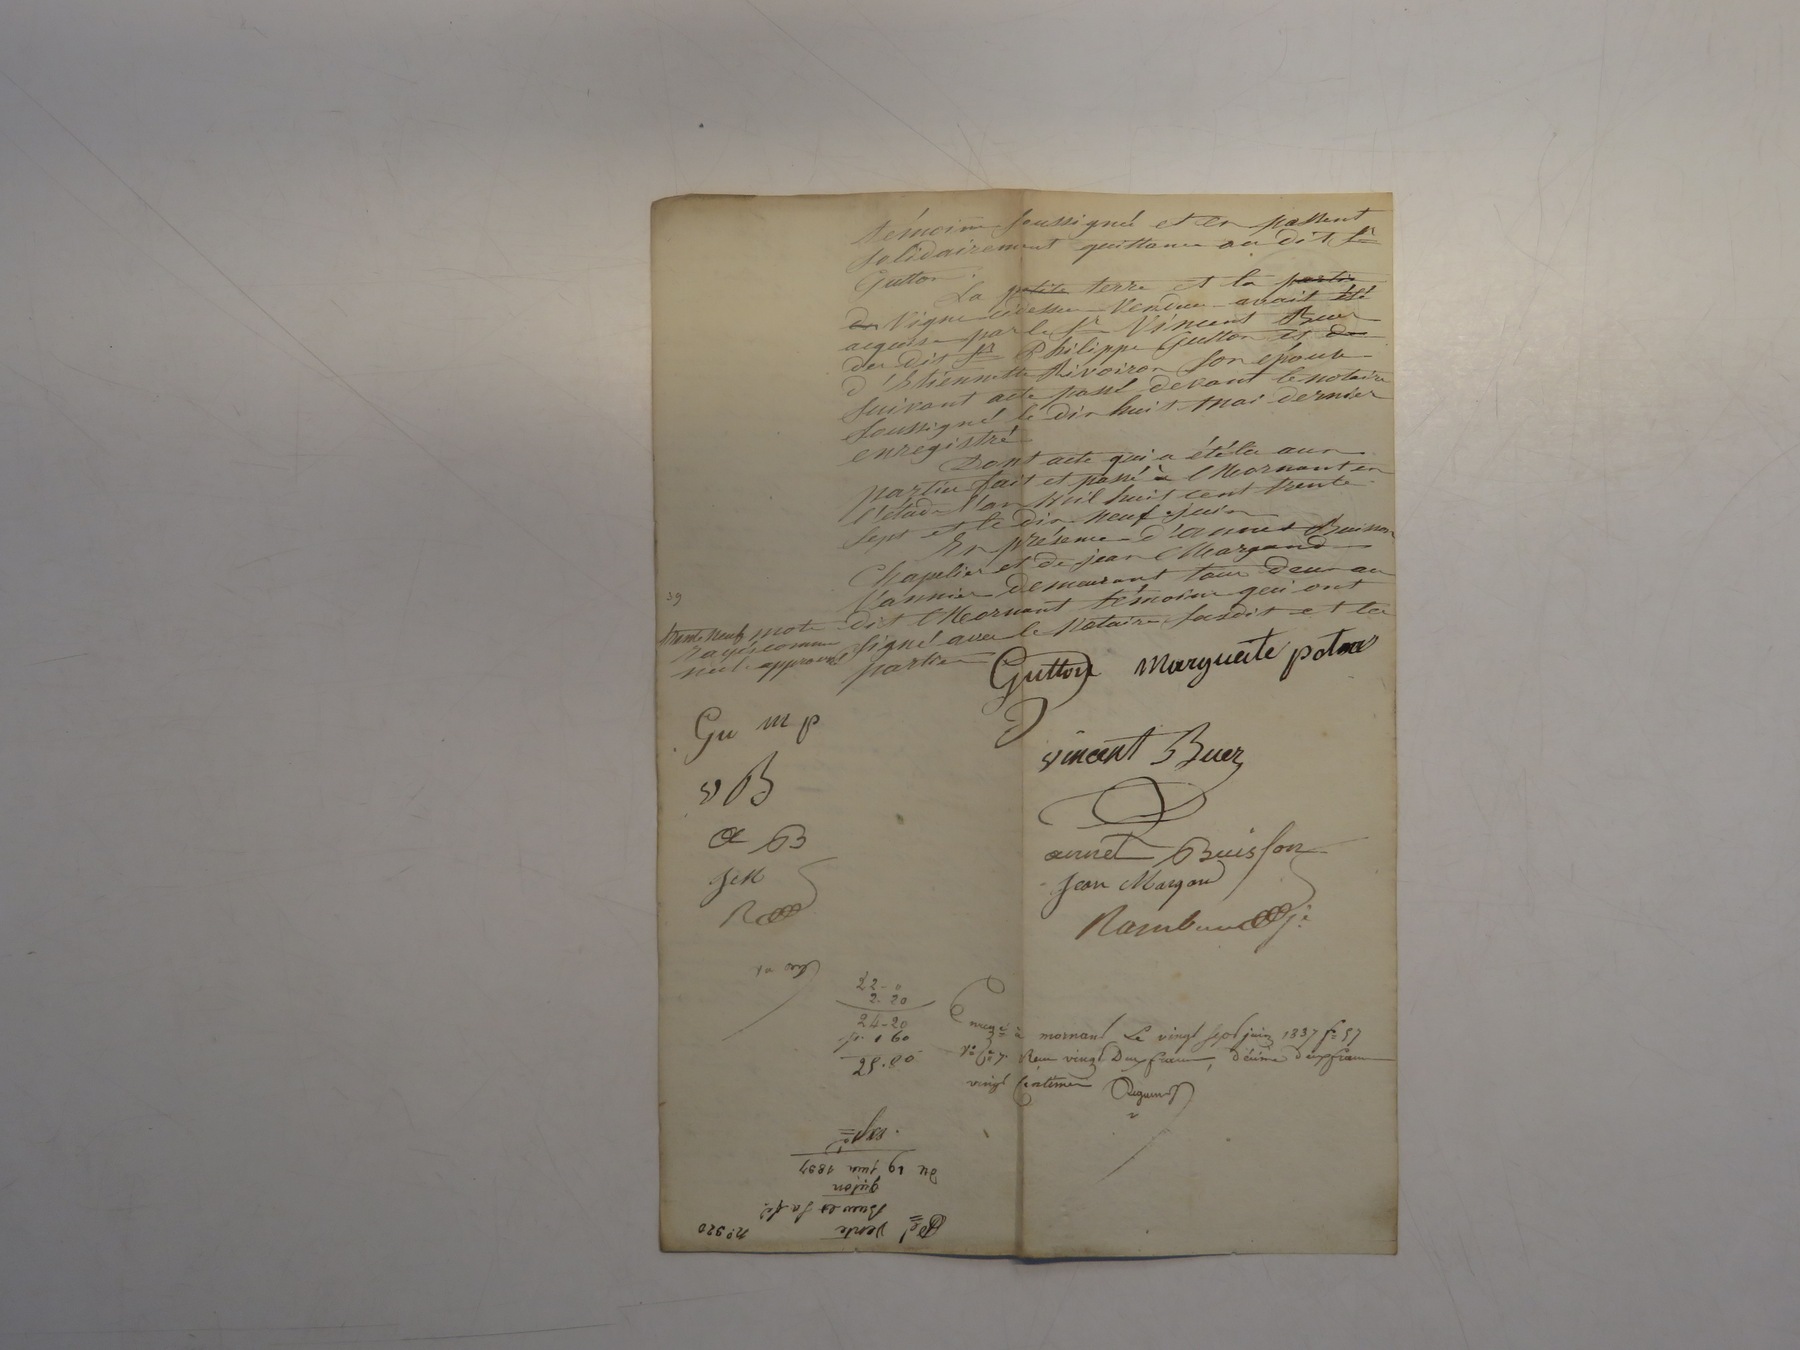 témoins soussignés et en passent
solidairement quittance au dit Sr
Gutton.
La petite terre et la partie
de Vigne cidessus Vendue avait été
acquise par le Sr Vincent Buer
du dit Sr Philippe Gutton et de
d'Etiennette Rivoiron son épouse
suivant acte passé devant le notaire
soussigné le dix huit mai dernier
enregistré
Dont acte qui a été lu aux
parties fait et passé à Mornant en
l'étude l'an Mil huit cent trente
sept et le dix neuf juin
En présence d'annet Buisson
Chapelier et de jean Margand
Vannier demeurant tous deux au
dit Mornant témoins qui ont
signé avec le Notaire susdit et les
parties
39
trente neuf mots
rayés comme
nuls approuvés
Gutton Marguerite poton
Gu m p
vincent Buer
v B
a B
annet Buisson
J M
Jean Margand
R
22 - "
2. 20
24 - 20
Enregé à mornant Le vingt sept juin 1837 fo 57
Vo Ce 7. Reçu vingt Deux francs, décime deux francs
vingt Centimes
No 320
Vente
Buer et sa fe
gutton
Du 19 juin 1837
expée